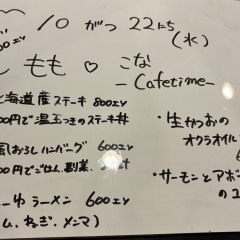 10 がつ 22にち
(水)
600エン
もも ♡ こな
- Cafetime -
海道産ステーキ 800エン
00円で温玉つきのステーキ丼
風おろしハンバーグ 600エン
00円でごはん、副菜、
ゆラーメン 600エン
ム、ねぎ、メンマ)
・生かつおの
オクラオイル
・サーモンとアボ
のユ